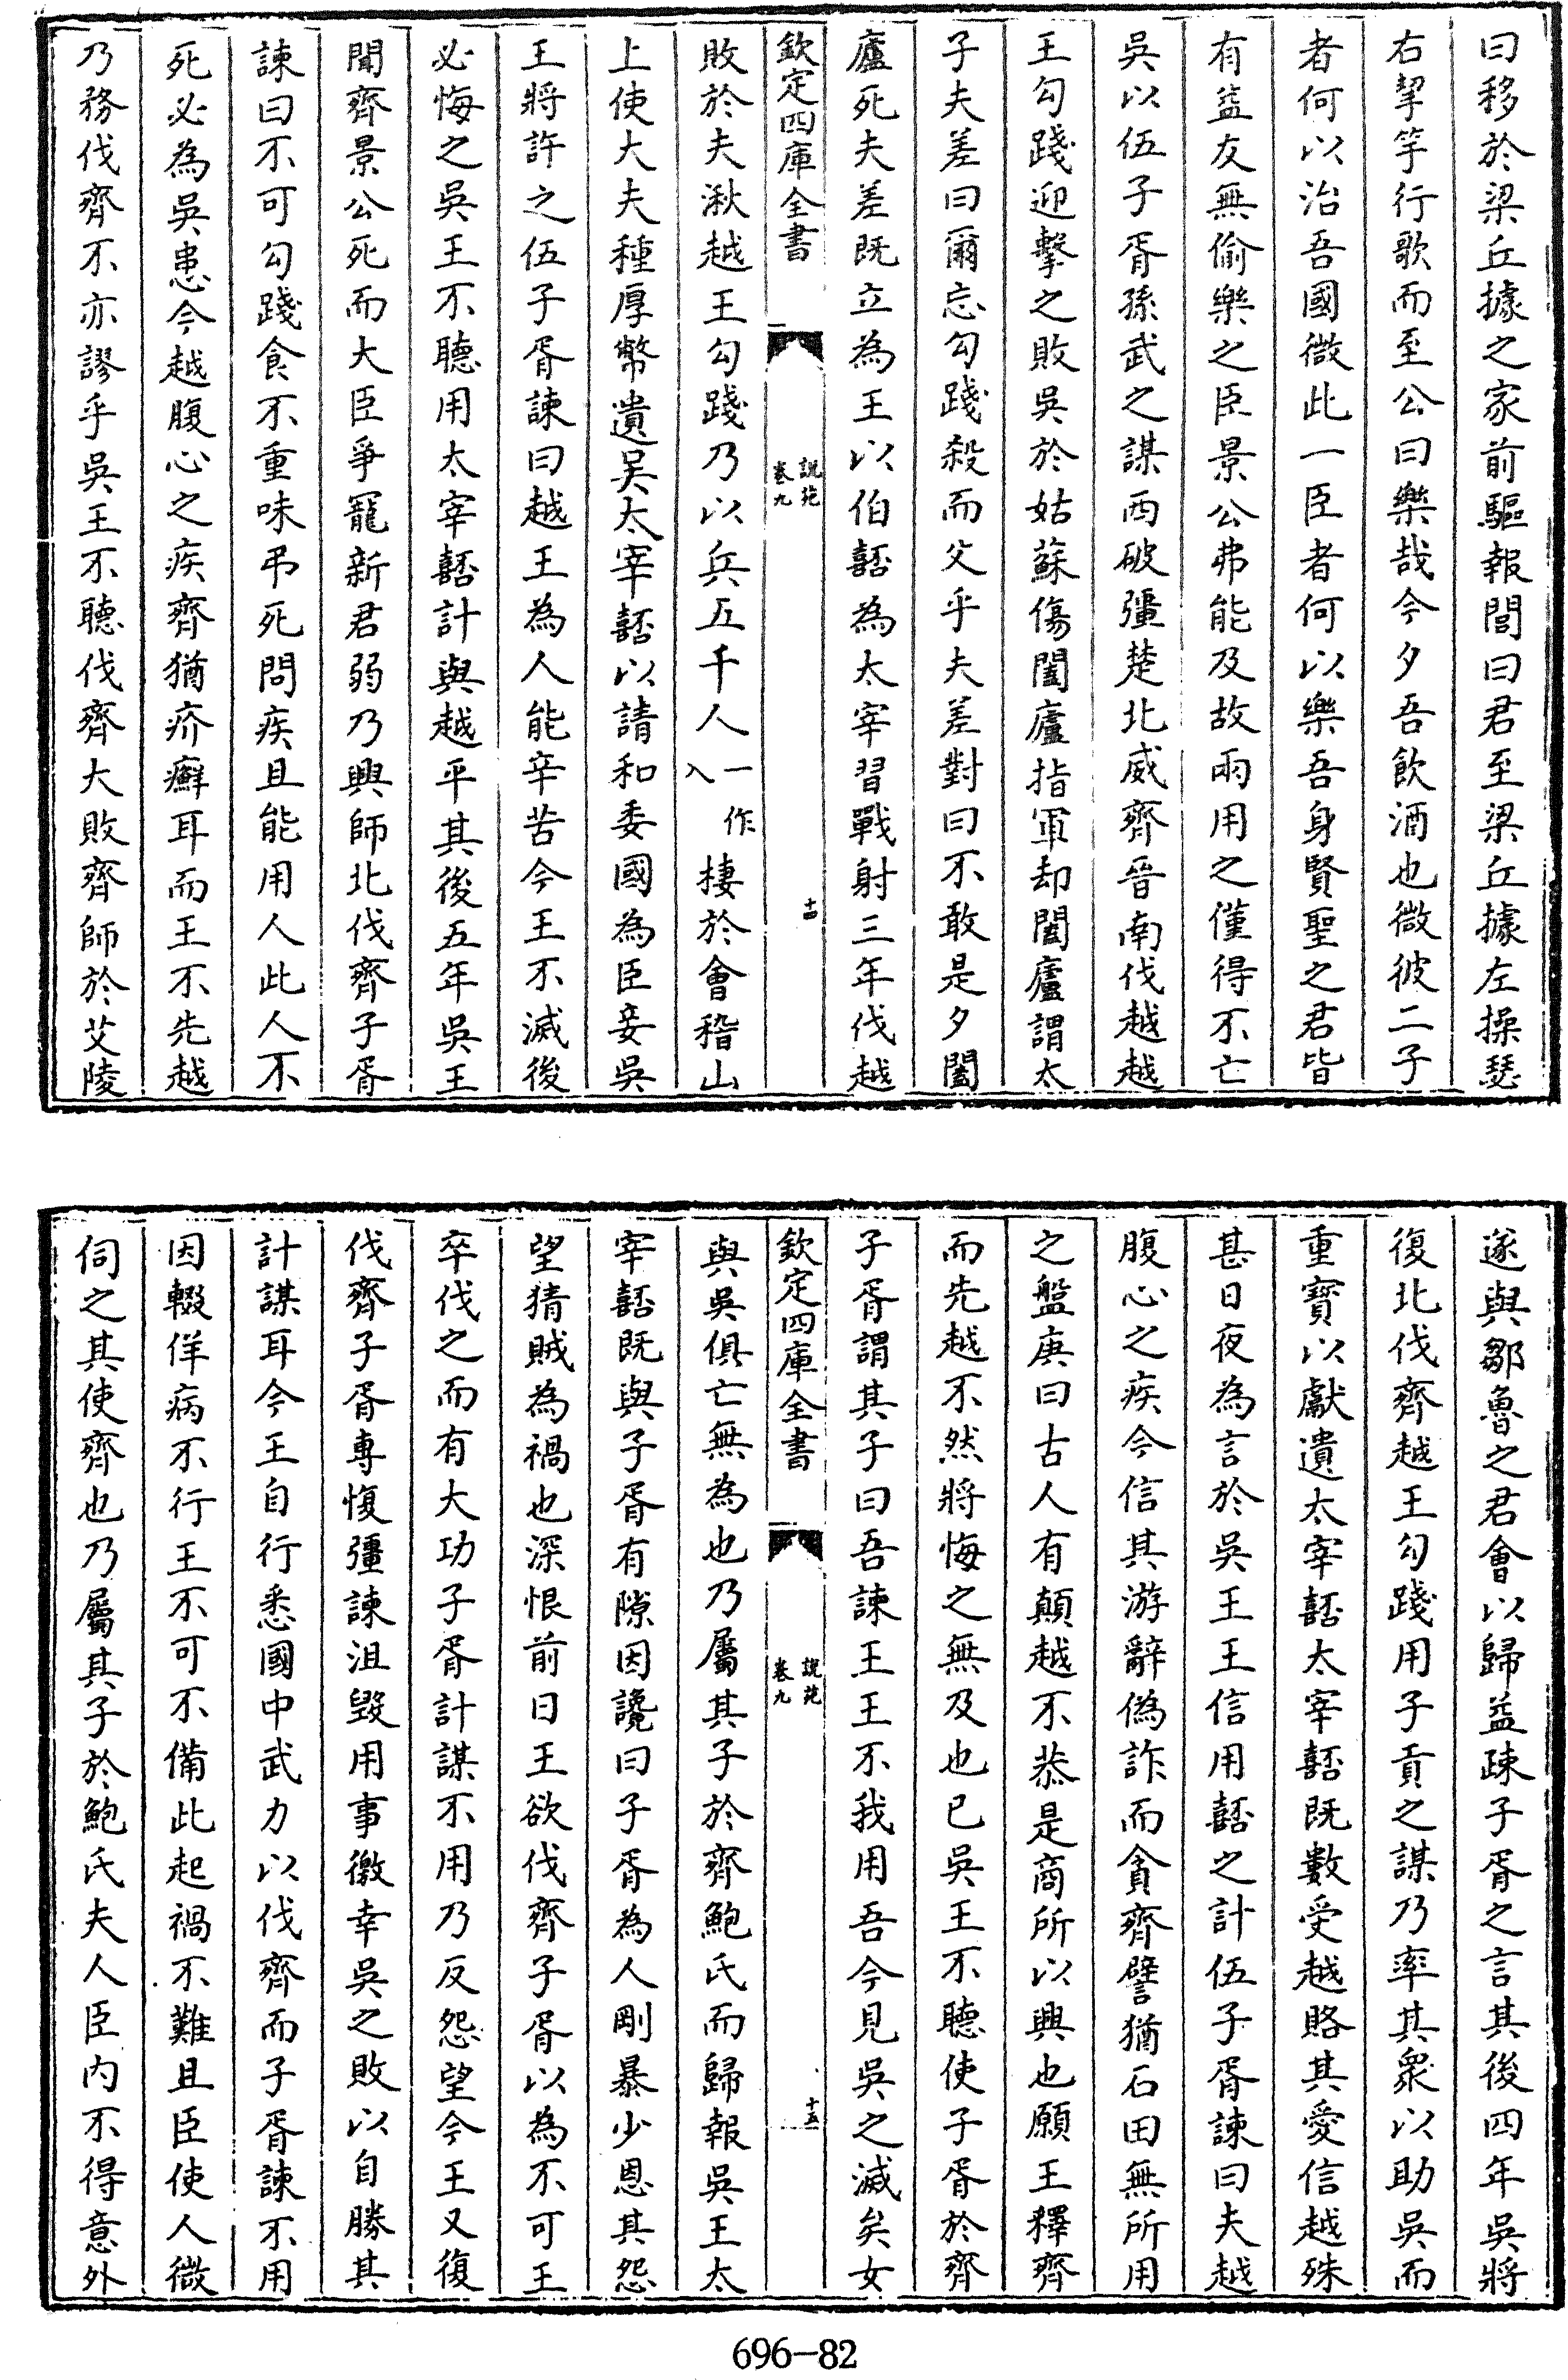 曰移於梁丘據之家前驅報閭曰君至梁丘據左操瑟
右挈竽行歌而至公曰樂哉今夕吾飲酒也微彼二子
者何以治吾國微此一臣者何以樂吾身賢聖之君皆
有益友無偷樂之臣景公弗能及故兩用之僅得不亡
吳以伍子胥孫武之謀西破彊楚北威齊晉南伐越越
王勾踐迎擊之敗吳於姑蘇傷闔廬指軍却闔廬謂太
子夫差曰爾忘勾踐殺而父乎夫差對曰不敢是夕闔
廬死夫差既立為王以伯嚭為太宰習戰射三年伐越
欽定四庫全書 說苑 卷九 十四
敗於夫湫越王勾踐乃以兵五千人一作入棲於會稽山
上使大夫種厚幣遺吳太宰嚭以請和委國為臣妾吳
王將許之伍子胥諫曰越王為人能辛苦今王不滅後
必悔之吳王不聽用太宰嚭計與越平其後五年吳王
聞齊景公死而大臣爭寵新君弱乃興師北伐齊子胥
諫曰不可勾踐食不重味弔死問疾且能用人此人不
死必為吳患今越腹心之疾齊猶疥癬耳而王不先越
乃務伐齊不亦謬乎吳王不聽伐齊大敗齊師於艾陵
遂與鄒魯之君會以歸益疎子胥之言其後四年吳將
復北伐齊越王勾踐用子貢之謀乃率其衆以助吳而
重寶以獻遺太宰嚭太宰嚭既數受越賂其愛信越殊
甚日夜為言於吳王王信用嚭之計伍子胥諫曰夫越
腹心之疾今信其游辭偽詐而貪齊譬猶石田無所用
之盤庚曰古人有顛越不恭是商所以興也願王釋齊
而先越不然將悔之無及也已吳王不聽使子胥於齊
子胥謂其子曰吾諫王王不我用吾今見吳之滅矣女
欽定四庫全書 說苑 卷九 十五
與吳俱亡無為也乃屬其子於齊鮑氏而歸報吳王太
宰嚭既與子胥有隙因讒曰子胥為人剛暴少恩其怨
望猜賊為禍也深恨前日王欲伐齊子胥以為不可王
卒伐之而有大功子胥計謀不用乃反怨望今王又復
伐齊子胥專愎彊諫沮毀用事徼幸吳之敗以自勝其
計謀耳今王自行悉國中武力以伐齊而子胥諫不用
因輟佯病不行王不可不備此起禍不難且臣使人微
伺之其使齊也乃屬其子於鮑氏夫人臣內不得意外
696-82